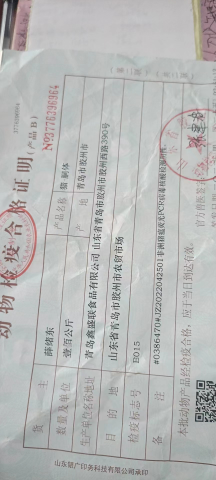 动物检疫合格证明(产品B)
№3776396964
货主 薛绪东 产品名称 猪 胴体
数量及单位 壹佰公斤 产地 青岛市胶州市
生产单位名称地址 青岛鑫盛联食品有限公司 山东省青岛市胶州市胶州西路390号
目的地 山东省青岛市胶州市农贸市场
检疫标志号 B015
备注 #0386470#JZ2022042501非洲猪瘟荧光PCR病毒核酸检测阴性
本批动物产品经检疫合格，应于当日到达有效。
官方兽医签字
山东烟广印务科技有限公司承印